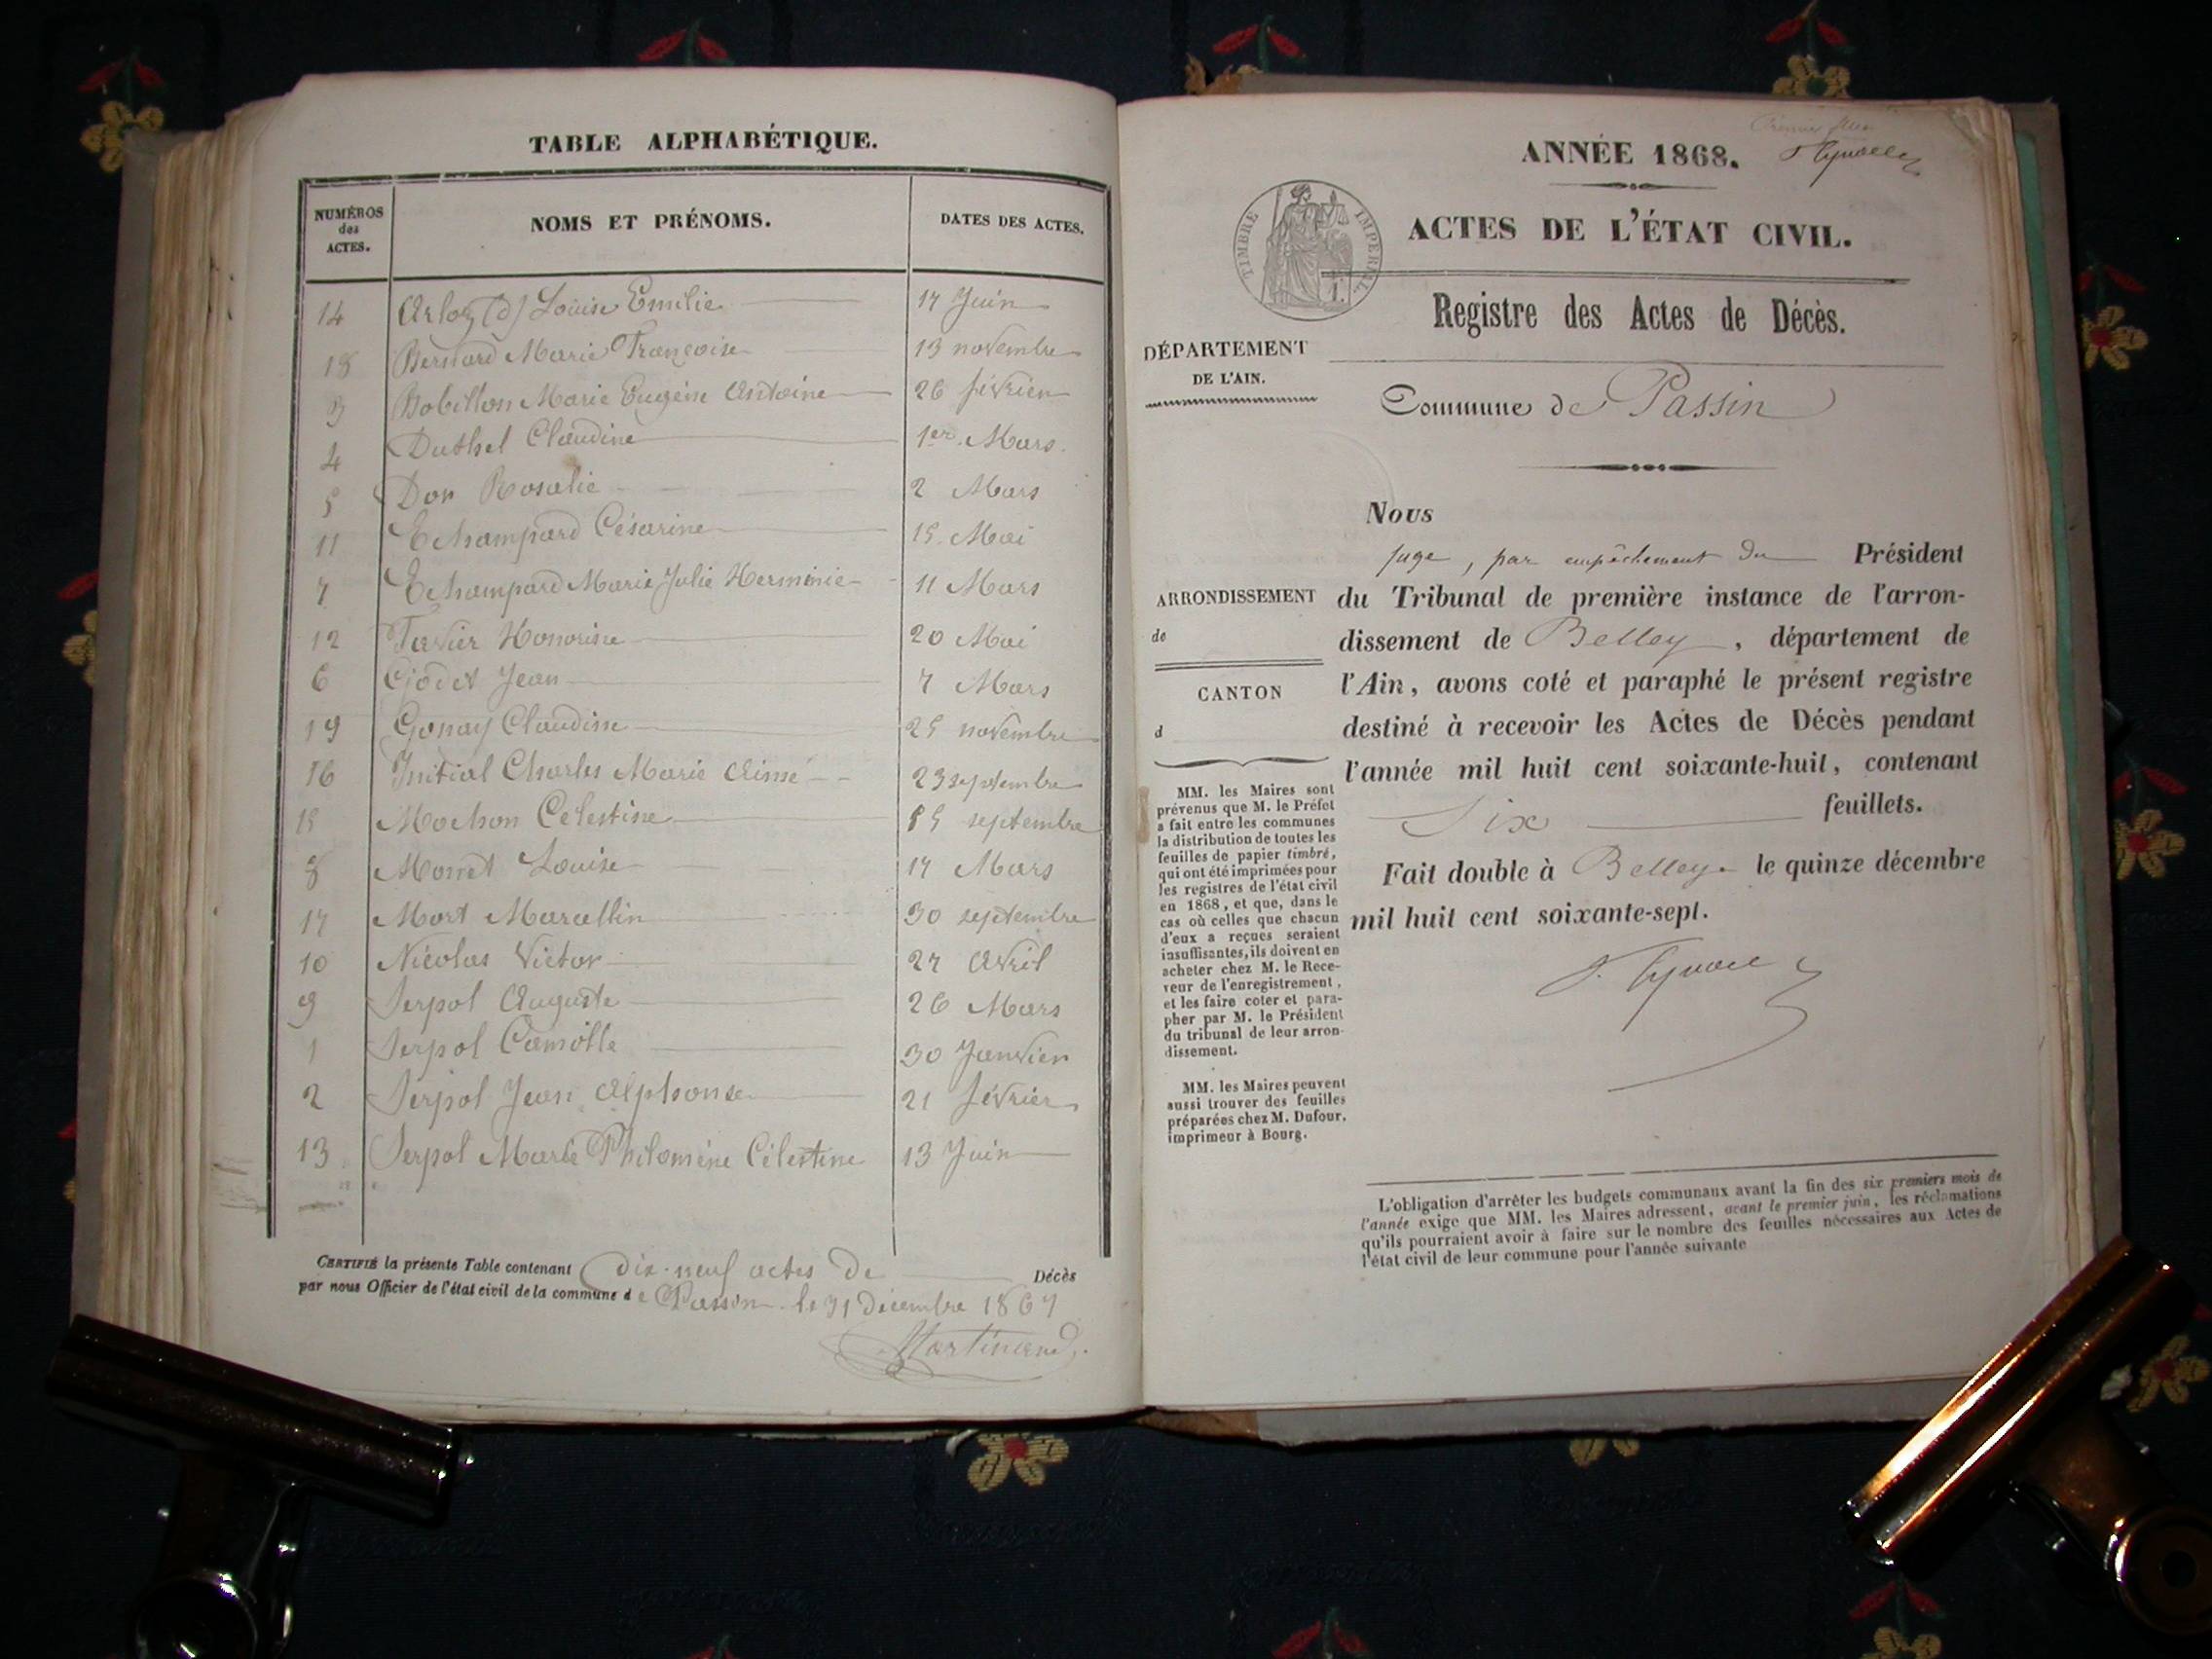 TABLE ALPHABÉTIQUE.
NUMÉROS des ACTES. NOMS ET PRÉNOMS. DATES DES ACTES.
14 Arloz (d) Louise Emilie 17 Juin
18 Bernard Marie Françoise 13 novembre
3 Bobillon Marie Eugène Antoine 26 février
4 Duthel Claudine 1er Mars.
5 Don Rosalie 2 Mars
11 Echampard Césarine 15 Mai
7 Echampard Marie Julie Herminie 11 Mars
12 Favier Honorine 20 Mai
6 Godet Jean 7 Mars
19 Gonay Claudine 25 novembre
16 Initial Charles Marie Aimé 23 septembre
15 Mochon Célestine 15 septembre
8 Monet Louise 17 Mars
17 Mort Marcellin 30 septembre
10 Nicolas Victor 27 Avril
9 Serpol Auguste 26 Mars
1 Serpol Camille 30 Janvier
2 Serpol Jean Alphonse 21 février
13 Serpol Marie Philomène Célestine 13 Juin
CERTIFIÉ la présente Table contenant dix-neuf actes de Décès
par nous Officier de l'état civil de la commune de Passin le 31 décembre 1867
Martinand
ANNÉE 1868.
TIMBRE IMPÉRIAL.
ACTES DE L'ÉTAT CIVIL.
Registre des Actes de Décès.
DÉPARTEMENT
DE L'AIN.
Commune de Passin
Nous
juge, par empêchement du Président
du Tribunal de première instance de l'arron-
dissement de Belley, département de
l'Ain, avons coté et paraphé le présent registre
destiné à recevoir les Actes de Décès pendant
l'année mil huit cent soixante-huit, contenant
Six feuillets.
Fait double à Belley le quinze décembre
mil huit cent soixante-sept.
ARRONDISSEMENT
de
CANTON
d
MM. les Maires sont
prévenus que M. le Préfet
a fait entre les communes
la distribution de toutes les
feuilles de papier timbré,
qui ont été imprimées pour
les registres de l'état civil
en 1868, et que, dans le
cas où celles que chacun
d'eux a reçues seraient
insuffisantes, ils doivent en
acheter chez M. le Rece-
veur de l'enregistrement,
et les faire coter et para-
pher par M. le Président
du tribunal de leur arron-
dissement.
MM. les Maires peuvent
aussi trouver des feuilles
préparées chez M. Dufour,
imprimeur à Bourg.
L'obligation d'arrêter les budgets communaux avant la fin des six premiers mois de
l'année exige que MM. les Maires adressent, avant le premier juin, les réclamations
qu'ils pourraient avoir à faire sur le nombre des feuilles nécessaires aux Actes de
l'état civil de leur commune pour l'année suivante